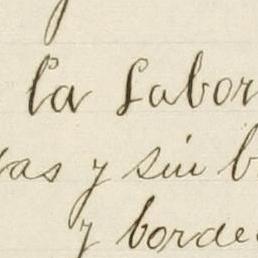 la Labor
as y sin b
y borde